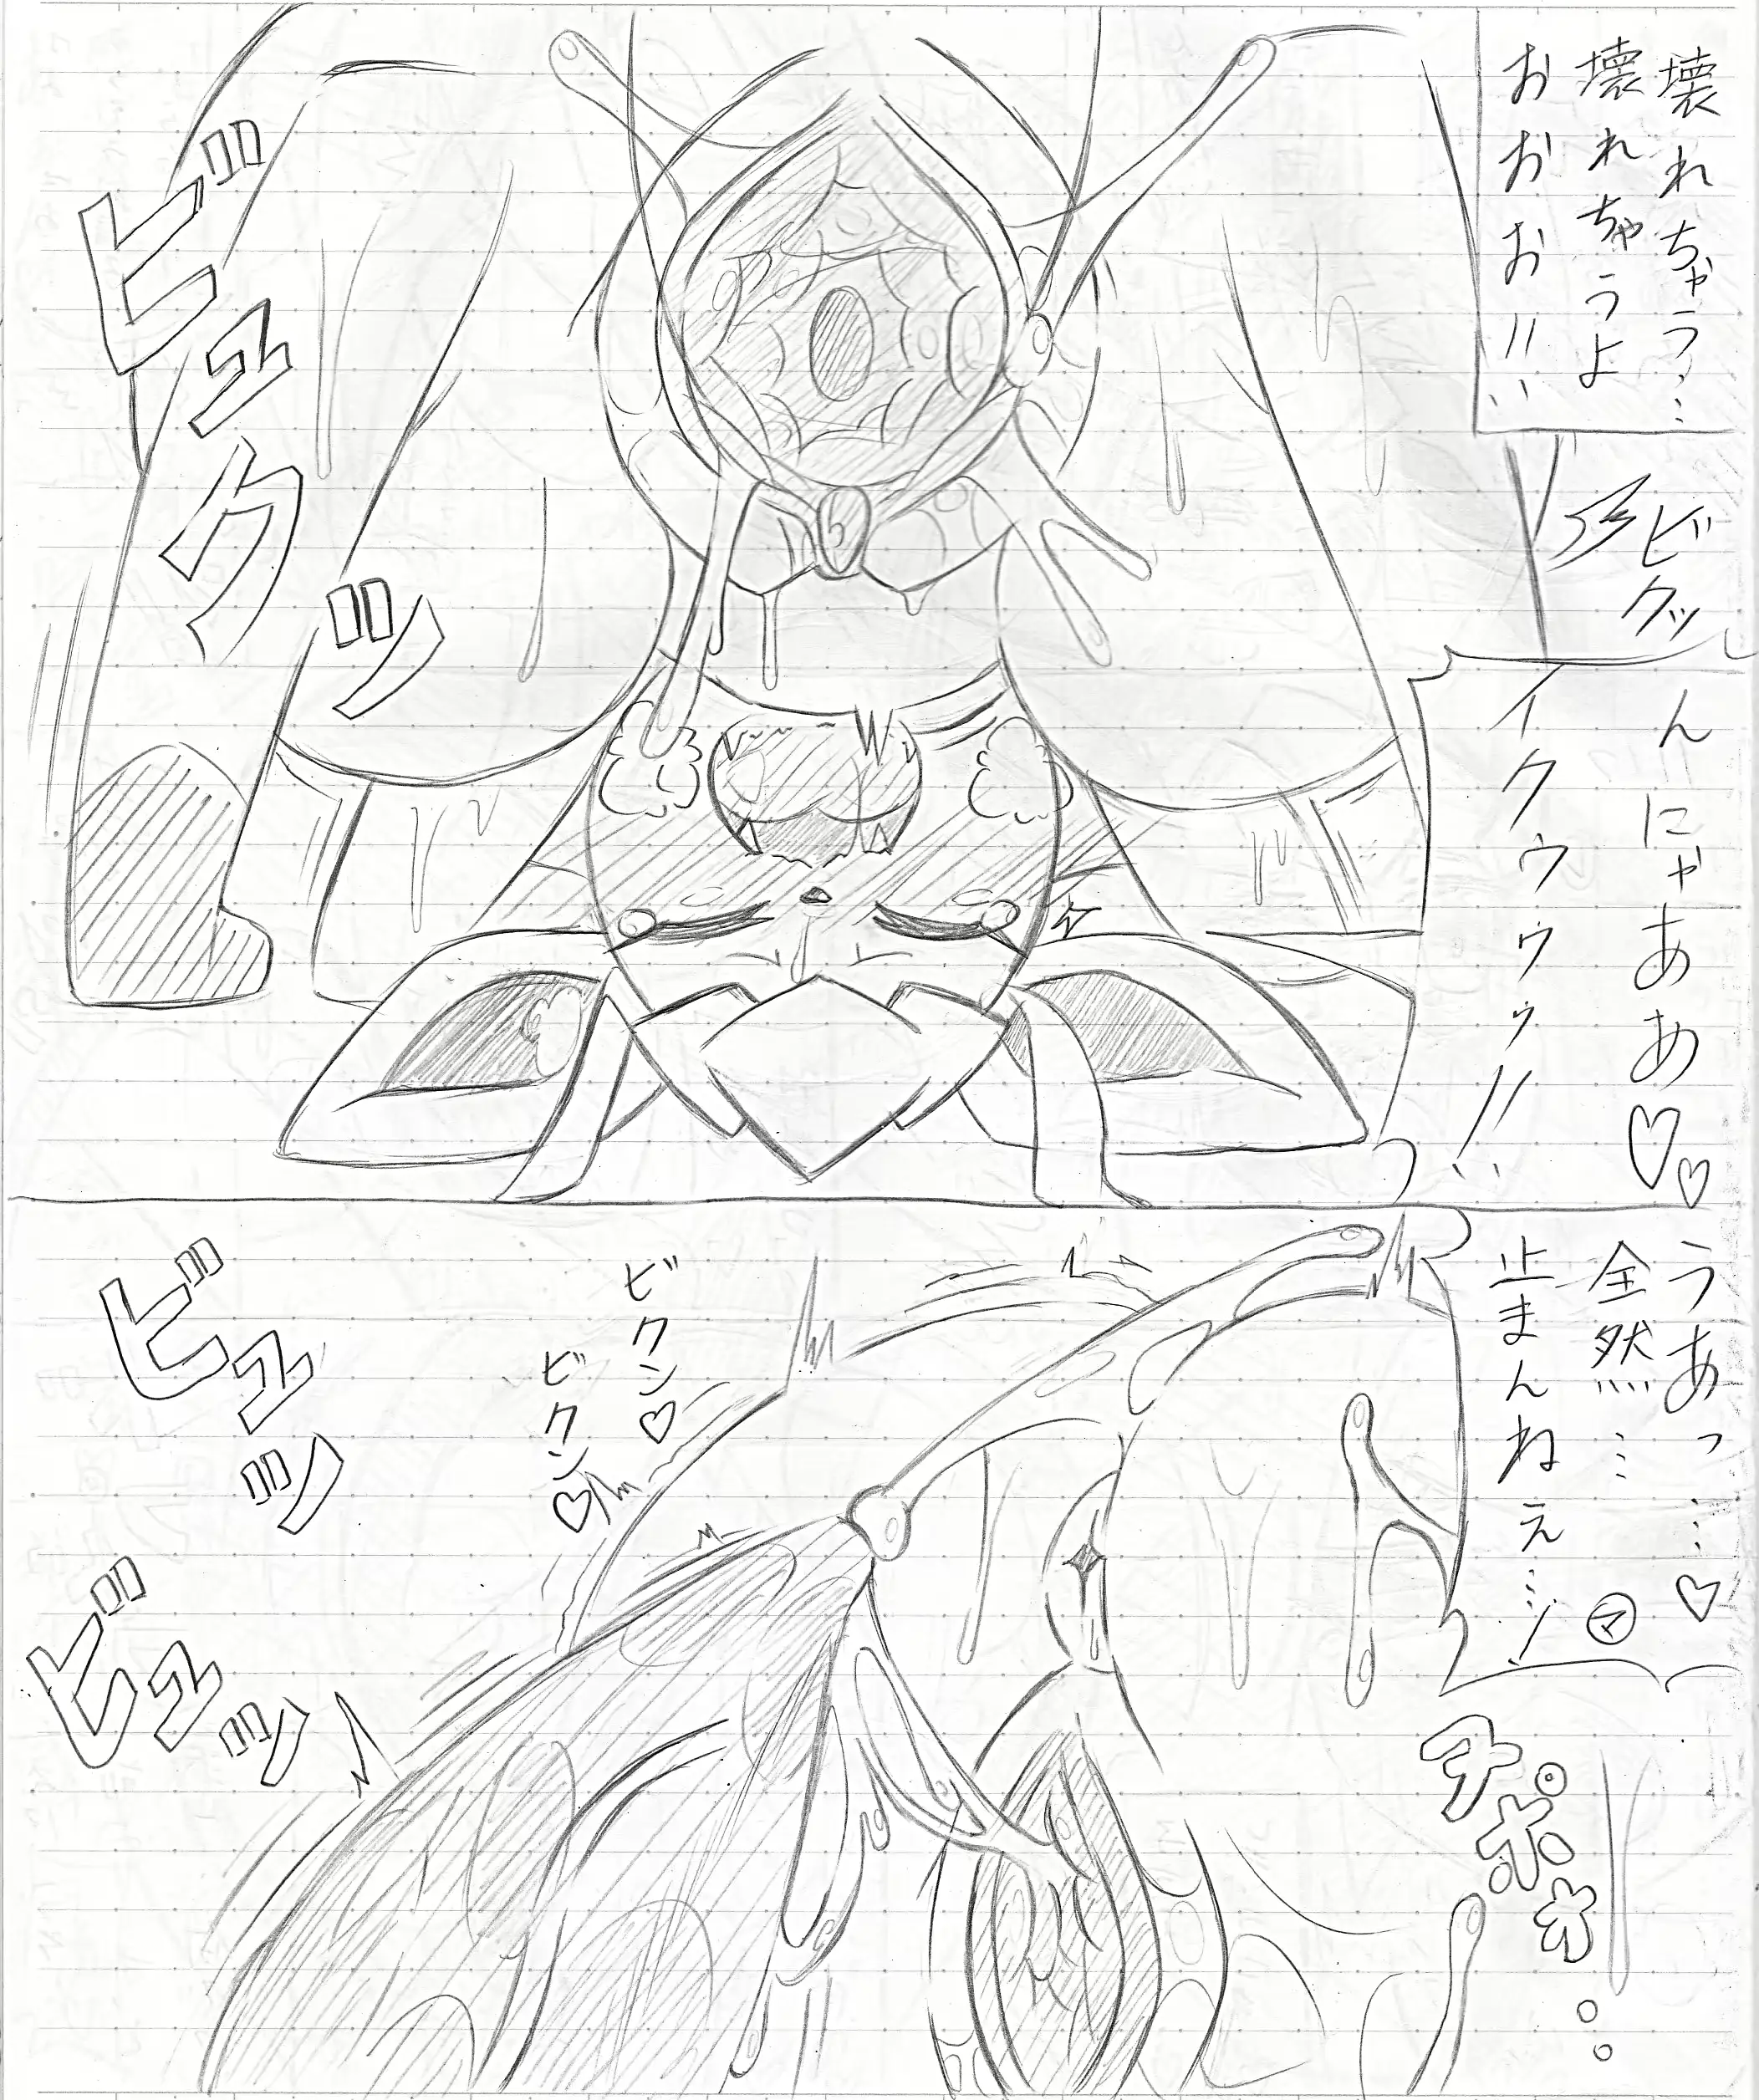 壊れちゃう…
壊れちゃうよ
おおおお!!
ビクッ
んにゃああ♡♡
イクゥゥゥッ!!
ビュクッ
うあっ…♡
全然…
止まんねぇ…
ビクン♡
ビクン♡
ビュッ
ビュッ